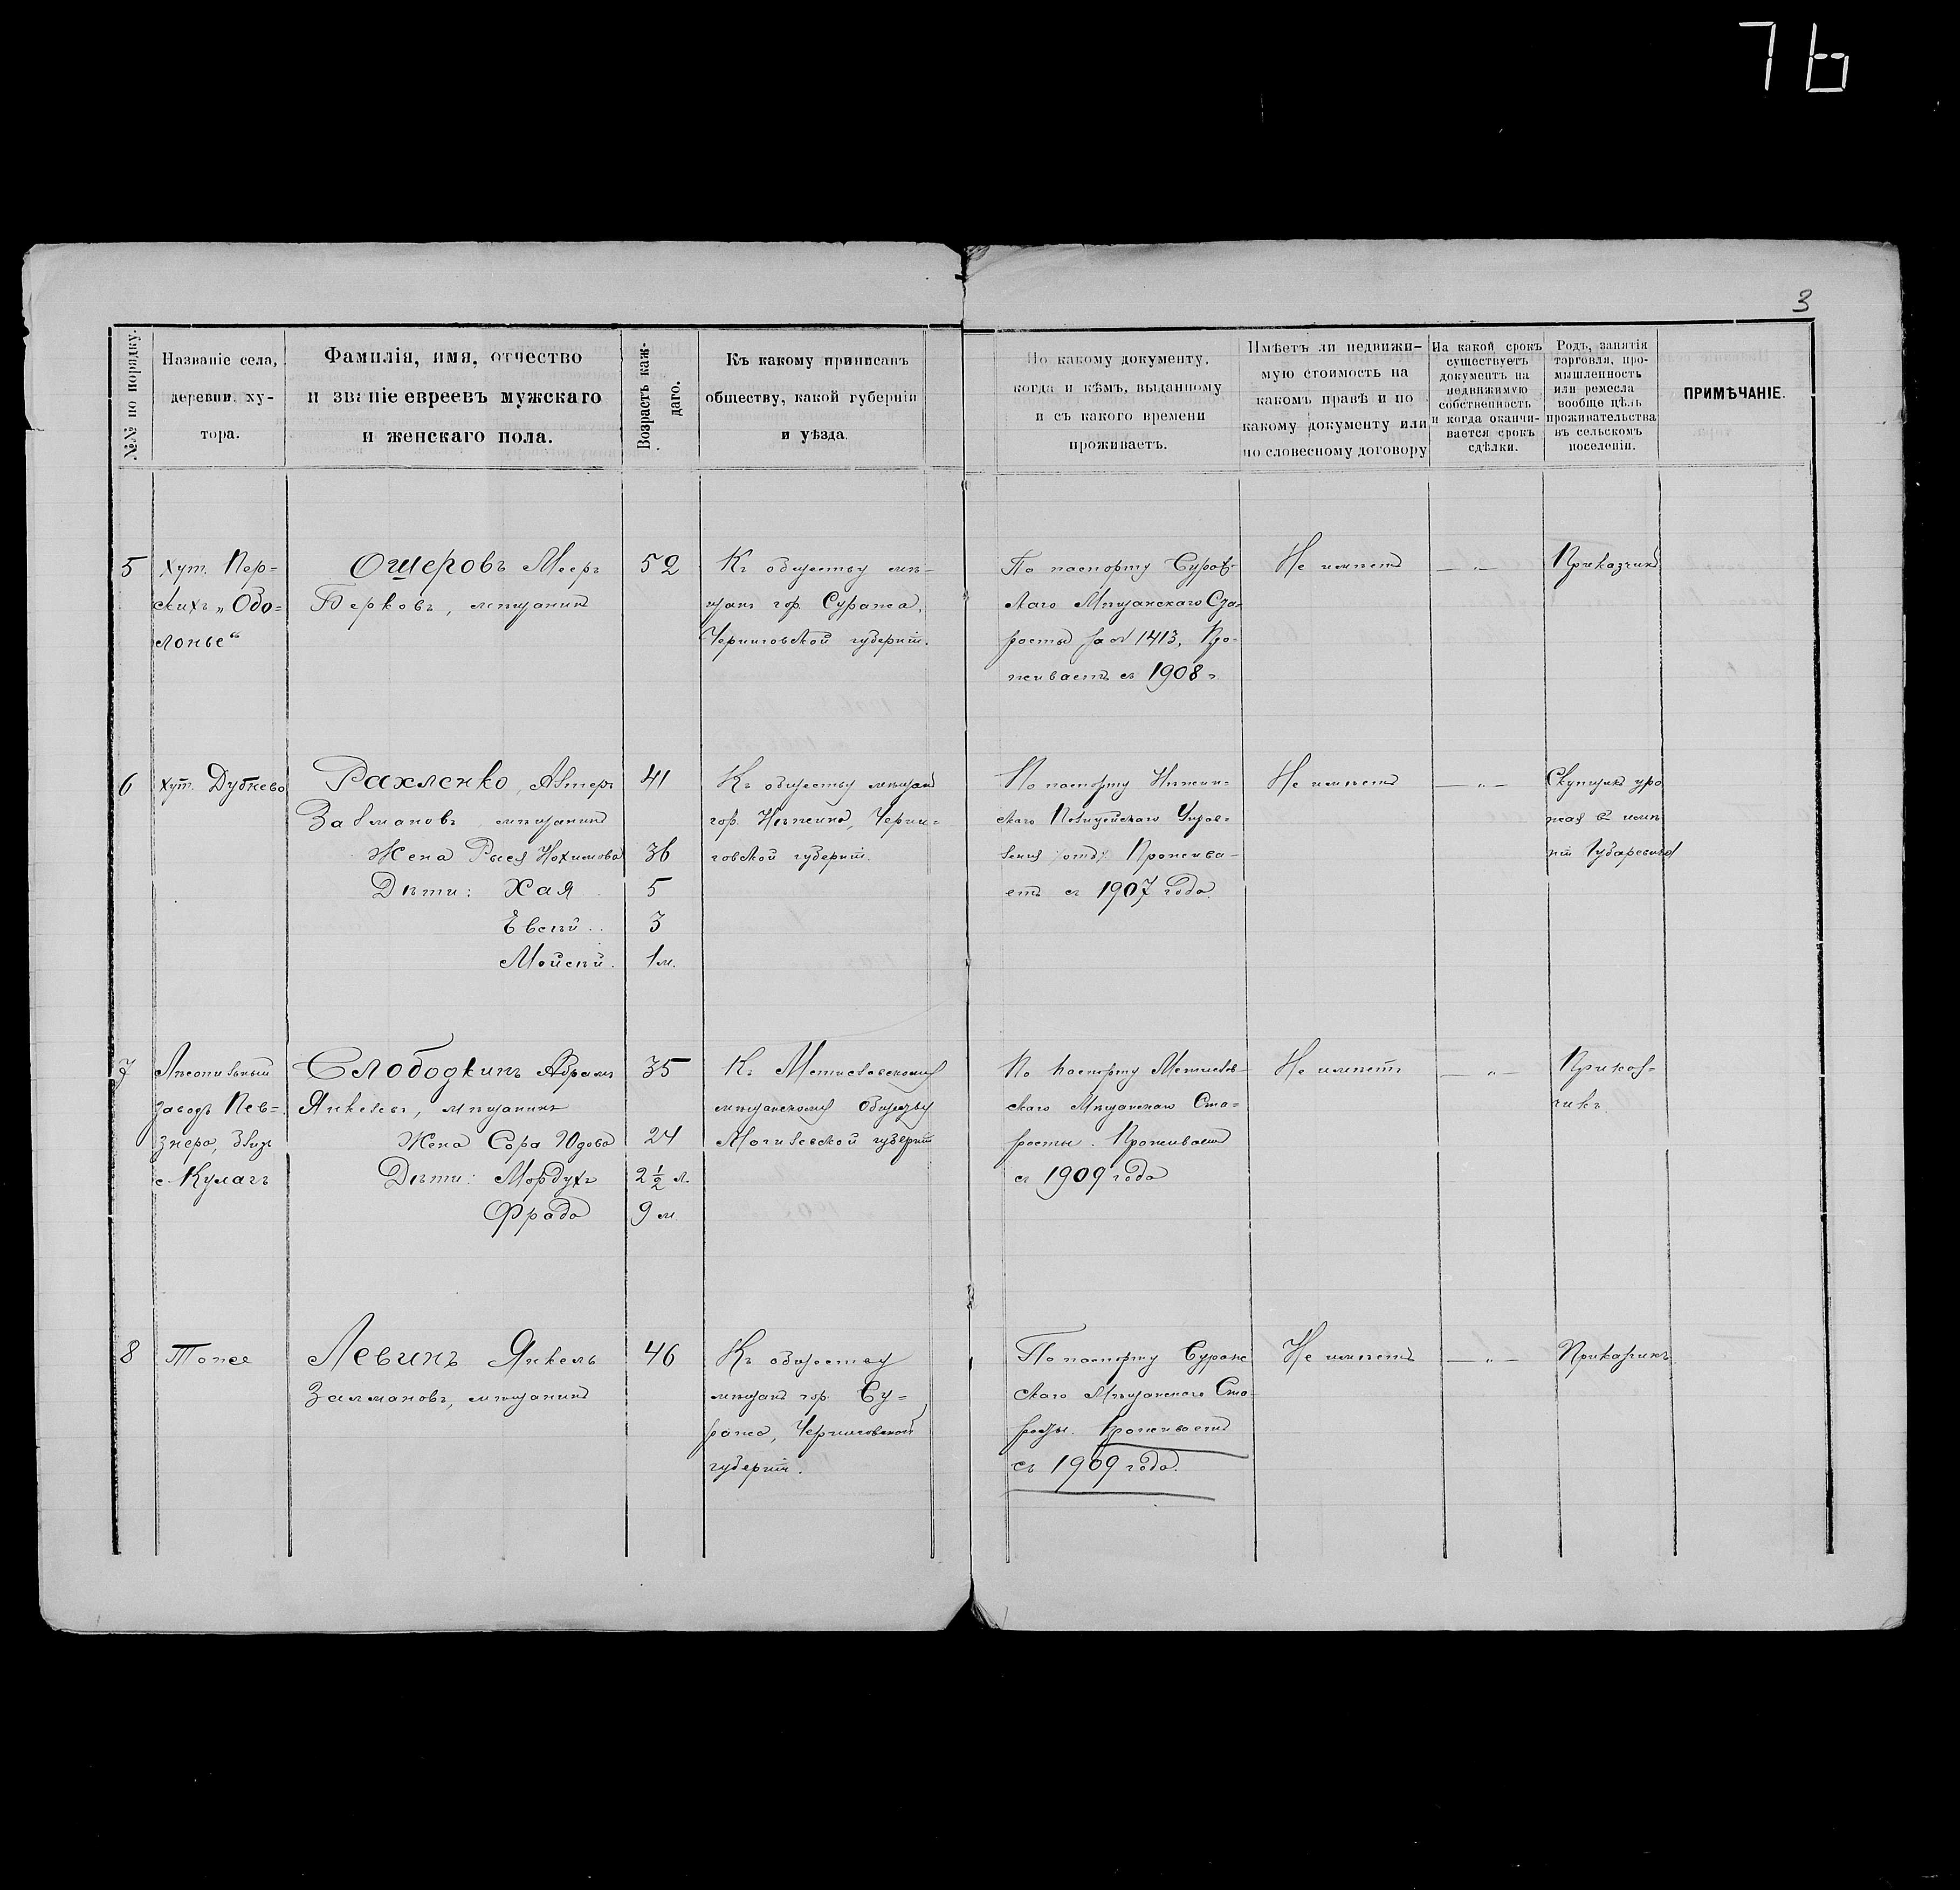 76
3
№№ по порядку.
Названіе села,
деревни, ху-
тора.
Фамилія, имя, отчество
и званіе евреевъ мужскаго
и женскаго пола.
Возрастъ каж-
даго.
Къ какому приписанъ
обществу, какой губерніи
и уѣзда.
По какому документу,
когда и кѣмъ, выданному
и съ какого времени
проживаетъ.
Имѣетъ ли недвижи-
мую стоимость на
какомъ правѣ и по
какому документу или
по словесному договору
На какой срокъ
существуетъ
документъ на
недвижимую
собственность
и когда оканчи-
вается срокъ
сдѣлки.
Родъ, занятія
торговля, про-
мышленность
или ремесла
вообще цѣль
проживательства
въ сельскомъ
поселеніи.
ПРИМѢЧАНІЕ.
5
хут. Пер-
скихъ „Обо-
лонье“
Ошеровъ Мееръ
Берковъ, мѣщанинъ
52
Къ обществу мѣ-
щанъ гор. Суража,
Черниговской губерніи.
По паспорту Сураж-
скаго Мѣщанскаго Ста-
росты за № 1413. Про-
живаетъ съ 1908 г.
Не имѣетъ
— „ —
Приказчикъ
6
хут. Дубнево
Рахленко, Абтеръ
Залмановъ мѣщанинъ
Жена Рыся Нохимова
Дѣти: Хая
Евсѣй
Мойсѣй.
41
36
5
3
1 м.
Къ обществу мѣщанъ
гор. Нѣжина, Черни-
говской губерніи.
По паспорту Нѣжин-
скаго Полицейскаго Управ-
ленія Прожива-
етъ съ 1907 года.
Не имѣетъ
— „ —
Скупщикъ уро
жая въ имѣ
ніи Губаревича
7
Лѣсопильный
заводъ Пев-
знера, близъ
с. Кулагъ
Слободкинъ Абрамъ
Янкелевъ, мѣщанинъ
Жена Сора Юдова
Дѣти: Мордухъ
Фрада
35
24
2 ½ л.
9 м.
Къ Мстиславскому
мѣщанскому обществу
Могилевской губерніи
По паспорту Мстислав-
скаго Мѣщанскаго Ста-
росты. Проживаетъ
съ 1909 года
Не имѣетъ
— „ —
Приказ-
чикъ
8
Тоже
Левинъ Янкель
Залмановъ, мѣщанинъ
46
Къ обществу
мѣщанъ гор. Су-
ража, Черниговской
губерніи.
По паспорту Сураж
скаго Мѣщанскаго Ста-
росты. Проживаетъ
съ 1909 года.
Не имѣетъ
— „ —
Приказчикъ